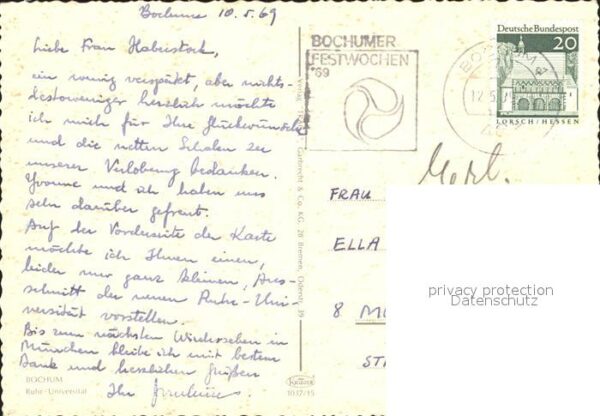 Bochum 10.5.69
Liebe Frau Haberstock,
ein wenig verspätet, aber nichts-
destoweniger herzlich möchte
ich mich für Ihre Glückwünsche
und die netten Schalen zu
unserer Verlobung bedanken.
Yvonne und ich haben uns
sehr darüber gefreut.
Auf der Vorderseite der Karte
möchte ich Ihnen einen,
leider nur ganz kleinen, Aus-
schnitt der neuen Ruhr-Uni-
versität vorstellen.
Bis zum nächsten Wiedersehen in
München bleibe ich mit bestem
Dank und herzlichen Grüßen
Ihr
BOCHUM
Ruhr-Universität
1037/15
Garbrecht & Co. KG, 28 Bremen,
39
BOCHUMER
FESTWOCHEN
'69
BOCHUM
12.5.
Deutsche Bundespost
20
LORSCH/HESSEN
FRAU
ELLA
8 M
ST
privacy protection
Datenschutz